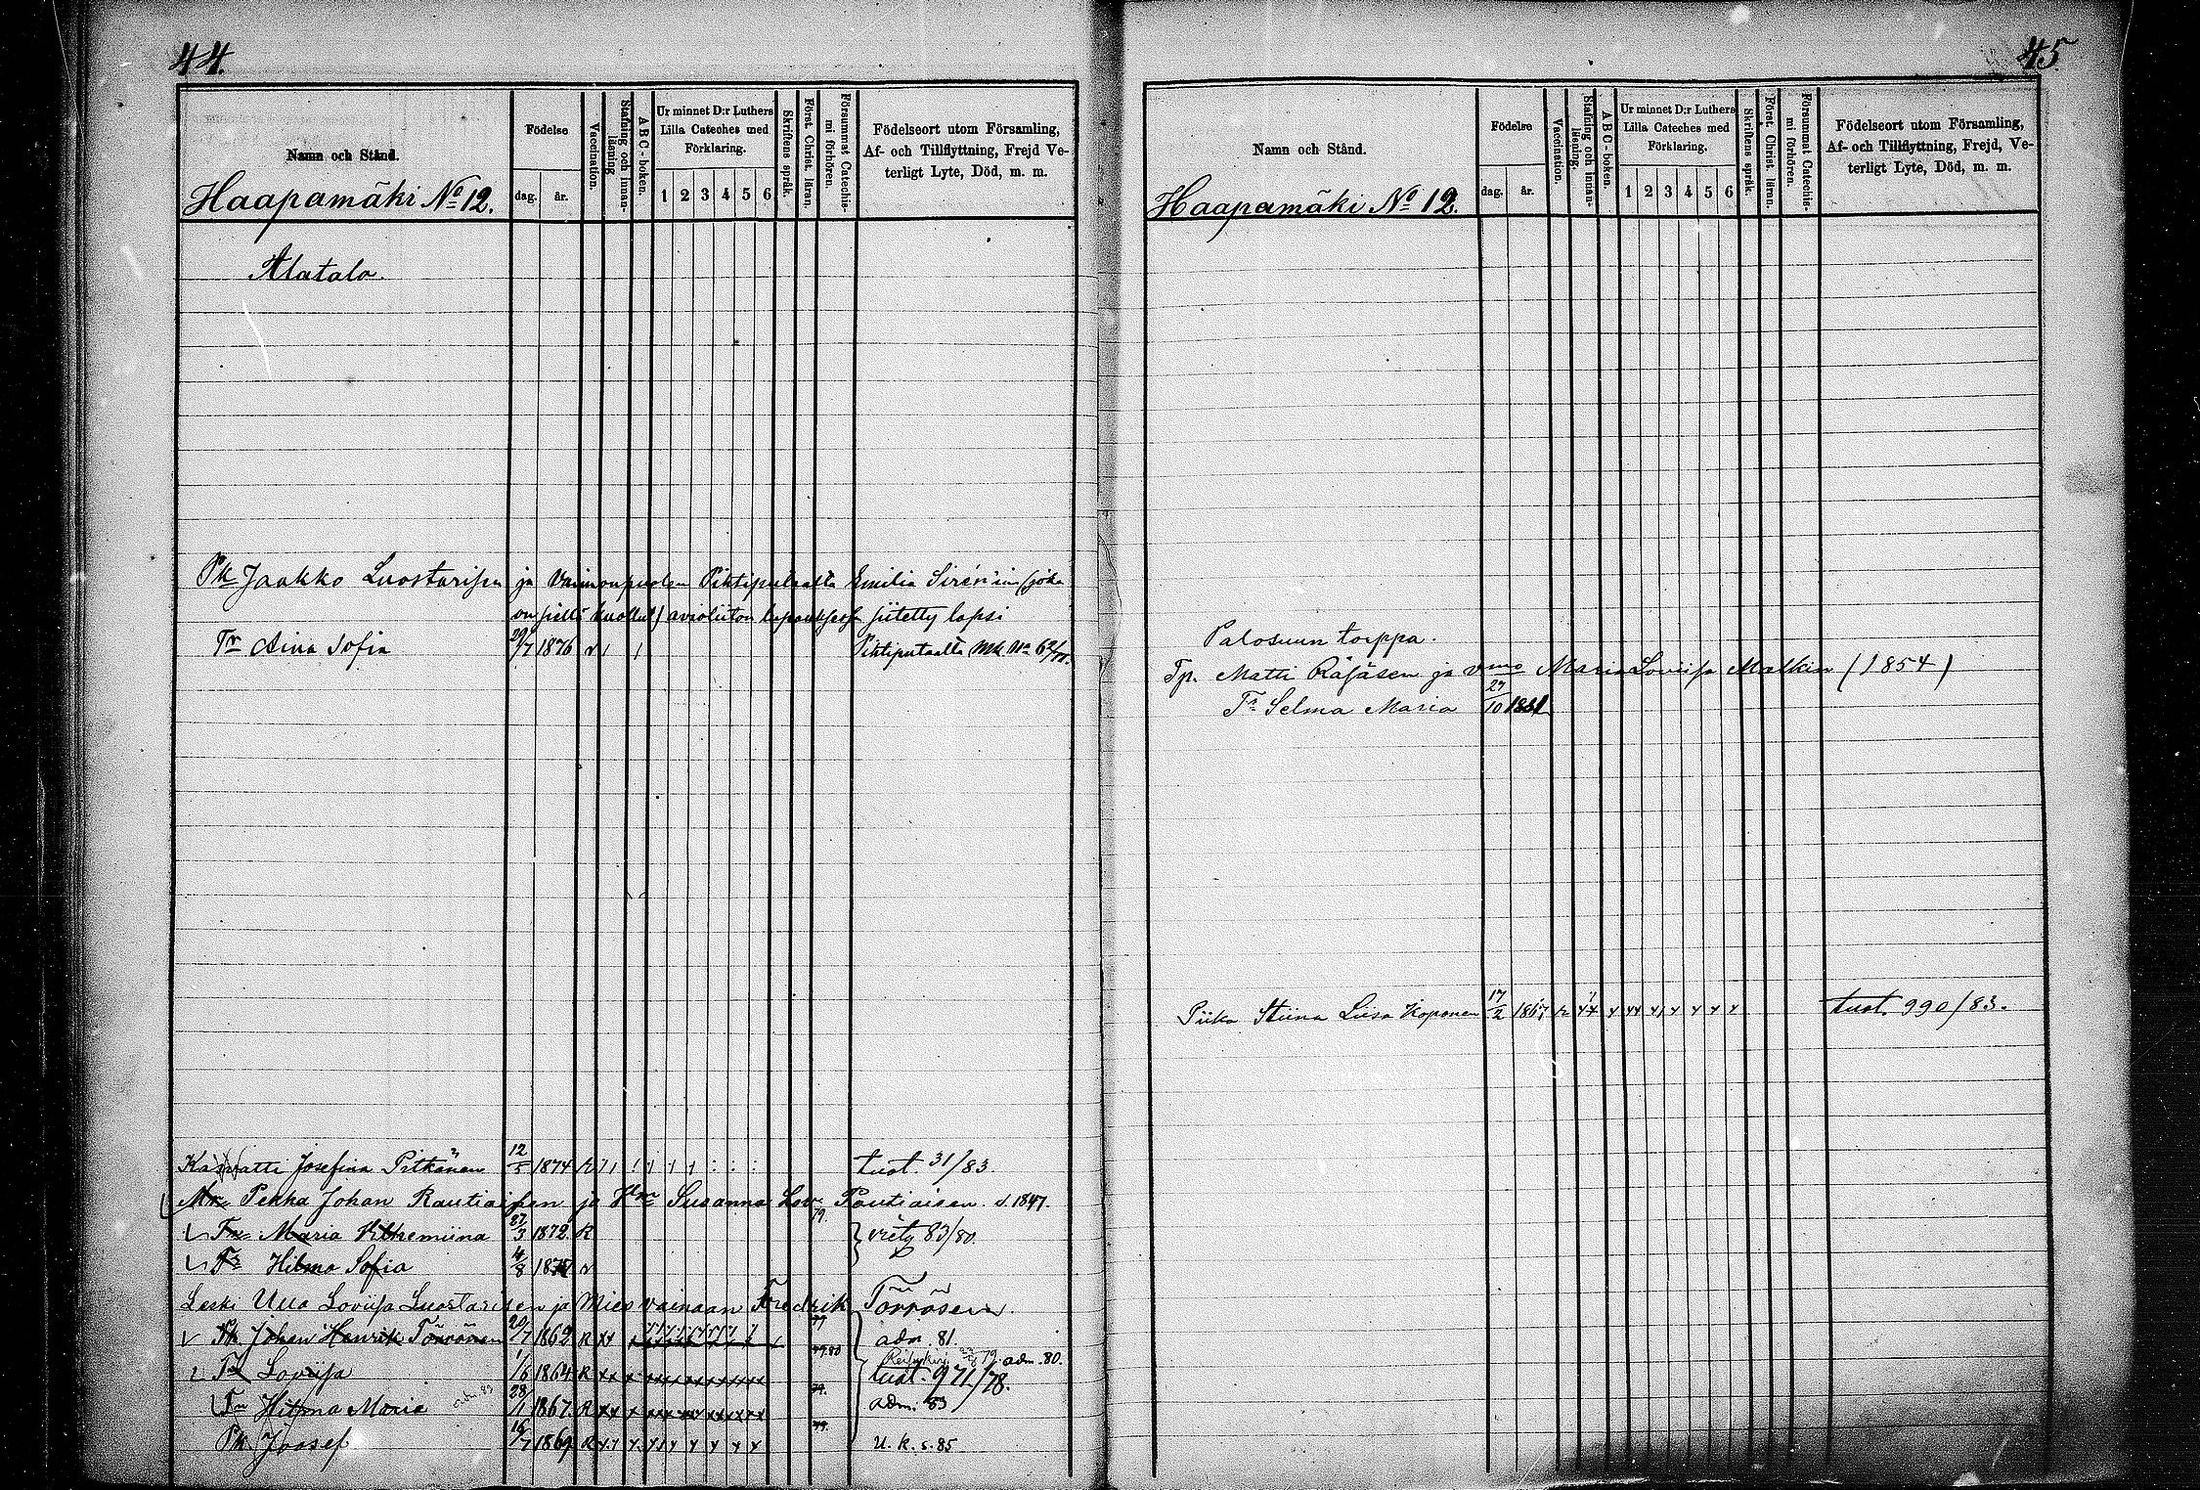 44.
Namn och Stånd.
Födelse
dag.
år.
Vaccination.
Stafning och innan-läsning
A B C-boken.
Ur minnet D:r Luthers
Lilla Cateches med
Förklaring.
1 2 3 4 5 6
Skriftens språk.
Först. Christ. läran.
Försummat Catechis-mi förhören.
Födelseort utom Församling,
Af- och Tillflyttning, Frejd Ve-
terligt Lyte, Död, m. m.
Haapamäki No 12.
Alatalo.
Pk Jaakko Luostarisen ja vaimonpuolen Pihtiputaalta Emilia Siren'in (joka
on siellä kuollut) avioliiton lupauksessa siitetty lapsi
Tr Aina Sofia 29/7 1876 Pihtiputaalta Mk No
Josefina Pitkänen 12/5 1874 tuot. 31/83.
Mr Pekka Johan Rautiaisen ja Susanna Lov. Rautiaisen. s. 1847.
Tr Maria Vilhemiina 27/3 1872 R 79. viety 83/80.
Tr Hilma Sofia 4/8
Leski Ulla Loviisa Luostarisen ja Mies vainaan Fredrik Törrösen.
Pk Johan Henrik Törrönen 20/7 1862 R 79 adm. 81.
Tr Loviisa 1/6 1864 R 79.80 79. adm. 80.
tuot. 971/78.
Tr Hilma Maria 28/1 1867. R 79. adm. 83
Pk Joosef 16/7 1869 R 79. u. k. s. 85
45.
Namn och Stånd.
Födelse
dag.
år.
Vaccination.
Stafning och innan-läsning.
A B C-boken.
Ur minnet D:r Luthers
Lilla Cateches med
Förklaring.
1 2 3 4 5 6
Skriftens språk.
Först. Christ. läran.
Försummat Catechis-mi förhören.
Födelseort utom Församling,
Af- och Tillflyttning, Frejd, Ve-
terligt Lyte, Död, m. m.
Haapamäki No 12.
Palosuun torppa.
Tp. Matti Räjäsen ja vmo Maria Loviisa Malkin (1854)
Tr Selma Maria 29/10 1881
Piika Stiina Liisa Koponen 17/2 1867 R tuot. 990/83.